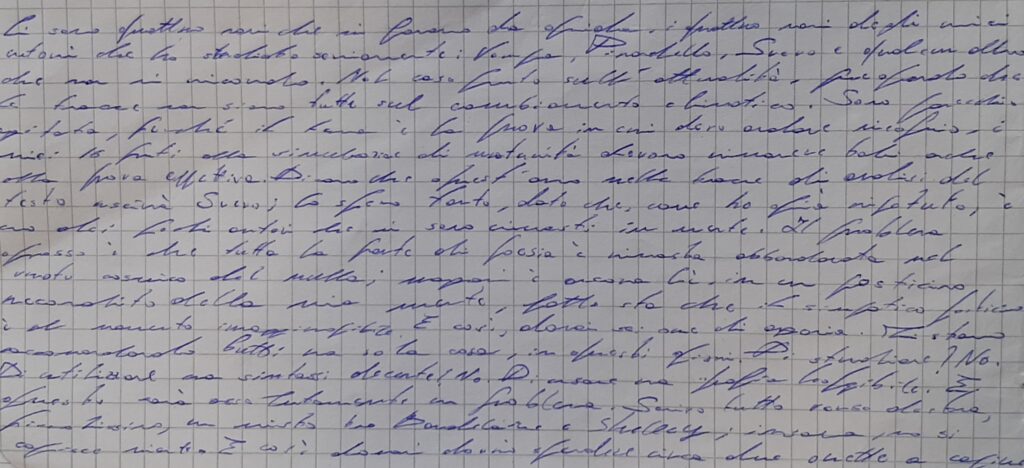 Ci sono quattro nomi che mi fanno da guida. i quattro nomi degli unici
autori che ho studiato seriamente: Verga, Pirandello, Svevo e qualcun altro
che non mi ricordo. Nel caso punto sull'attualità, pregando che
le tracce non siano tutte sul cambiamento climatico. Sono parecchio
agitata, perché il tema è la prova in cui devo andare meglio, i
miei 16 punti alla simulazione di maturità devono rimanere tali anche
alla prova effettiva. Dicono che quest'anno nelle tracce di analisi del
testo uscirà Svevo; lo spero tanto, dato che, come ho già ripetuto, è
uno dei pochi autori che mi sono rimasti in mente. Il problema
grosso è che tutta la parte di poesia è rimasta abbandonata nel
vuoto cosmico del nulla; magari è ancora lì, in un posticino
recondito della mia mente, fatto sta che il simpatico posticino
è al momento irraggiungibile. E così, domani sei ore di agonia. Mi stanno
raccomandando tutti una sola cosa, in questi giorni. Di studiare? No.
Di utilizzare una sintassi decente? No. Di usare una grafia leggibile. E
questo sarà assolutamente un problema. Scrivo tutto verso destra,
, un misto tra Baudelaire e Shelley; insomma, non si
capisce niente. E così domani dovrò spendere circa due orette a capire